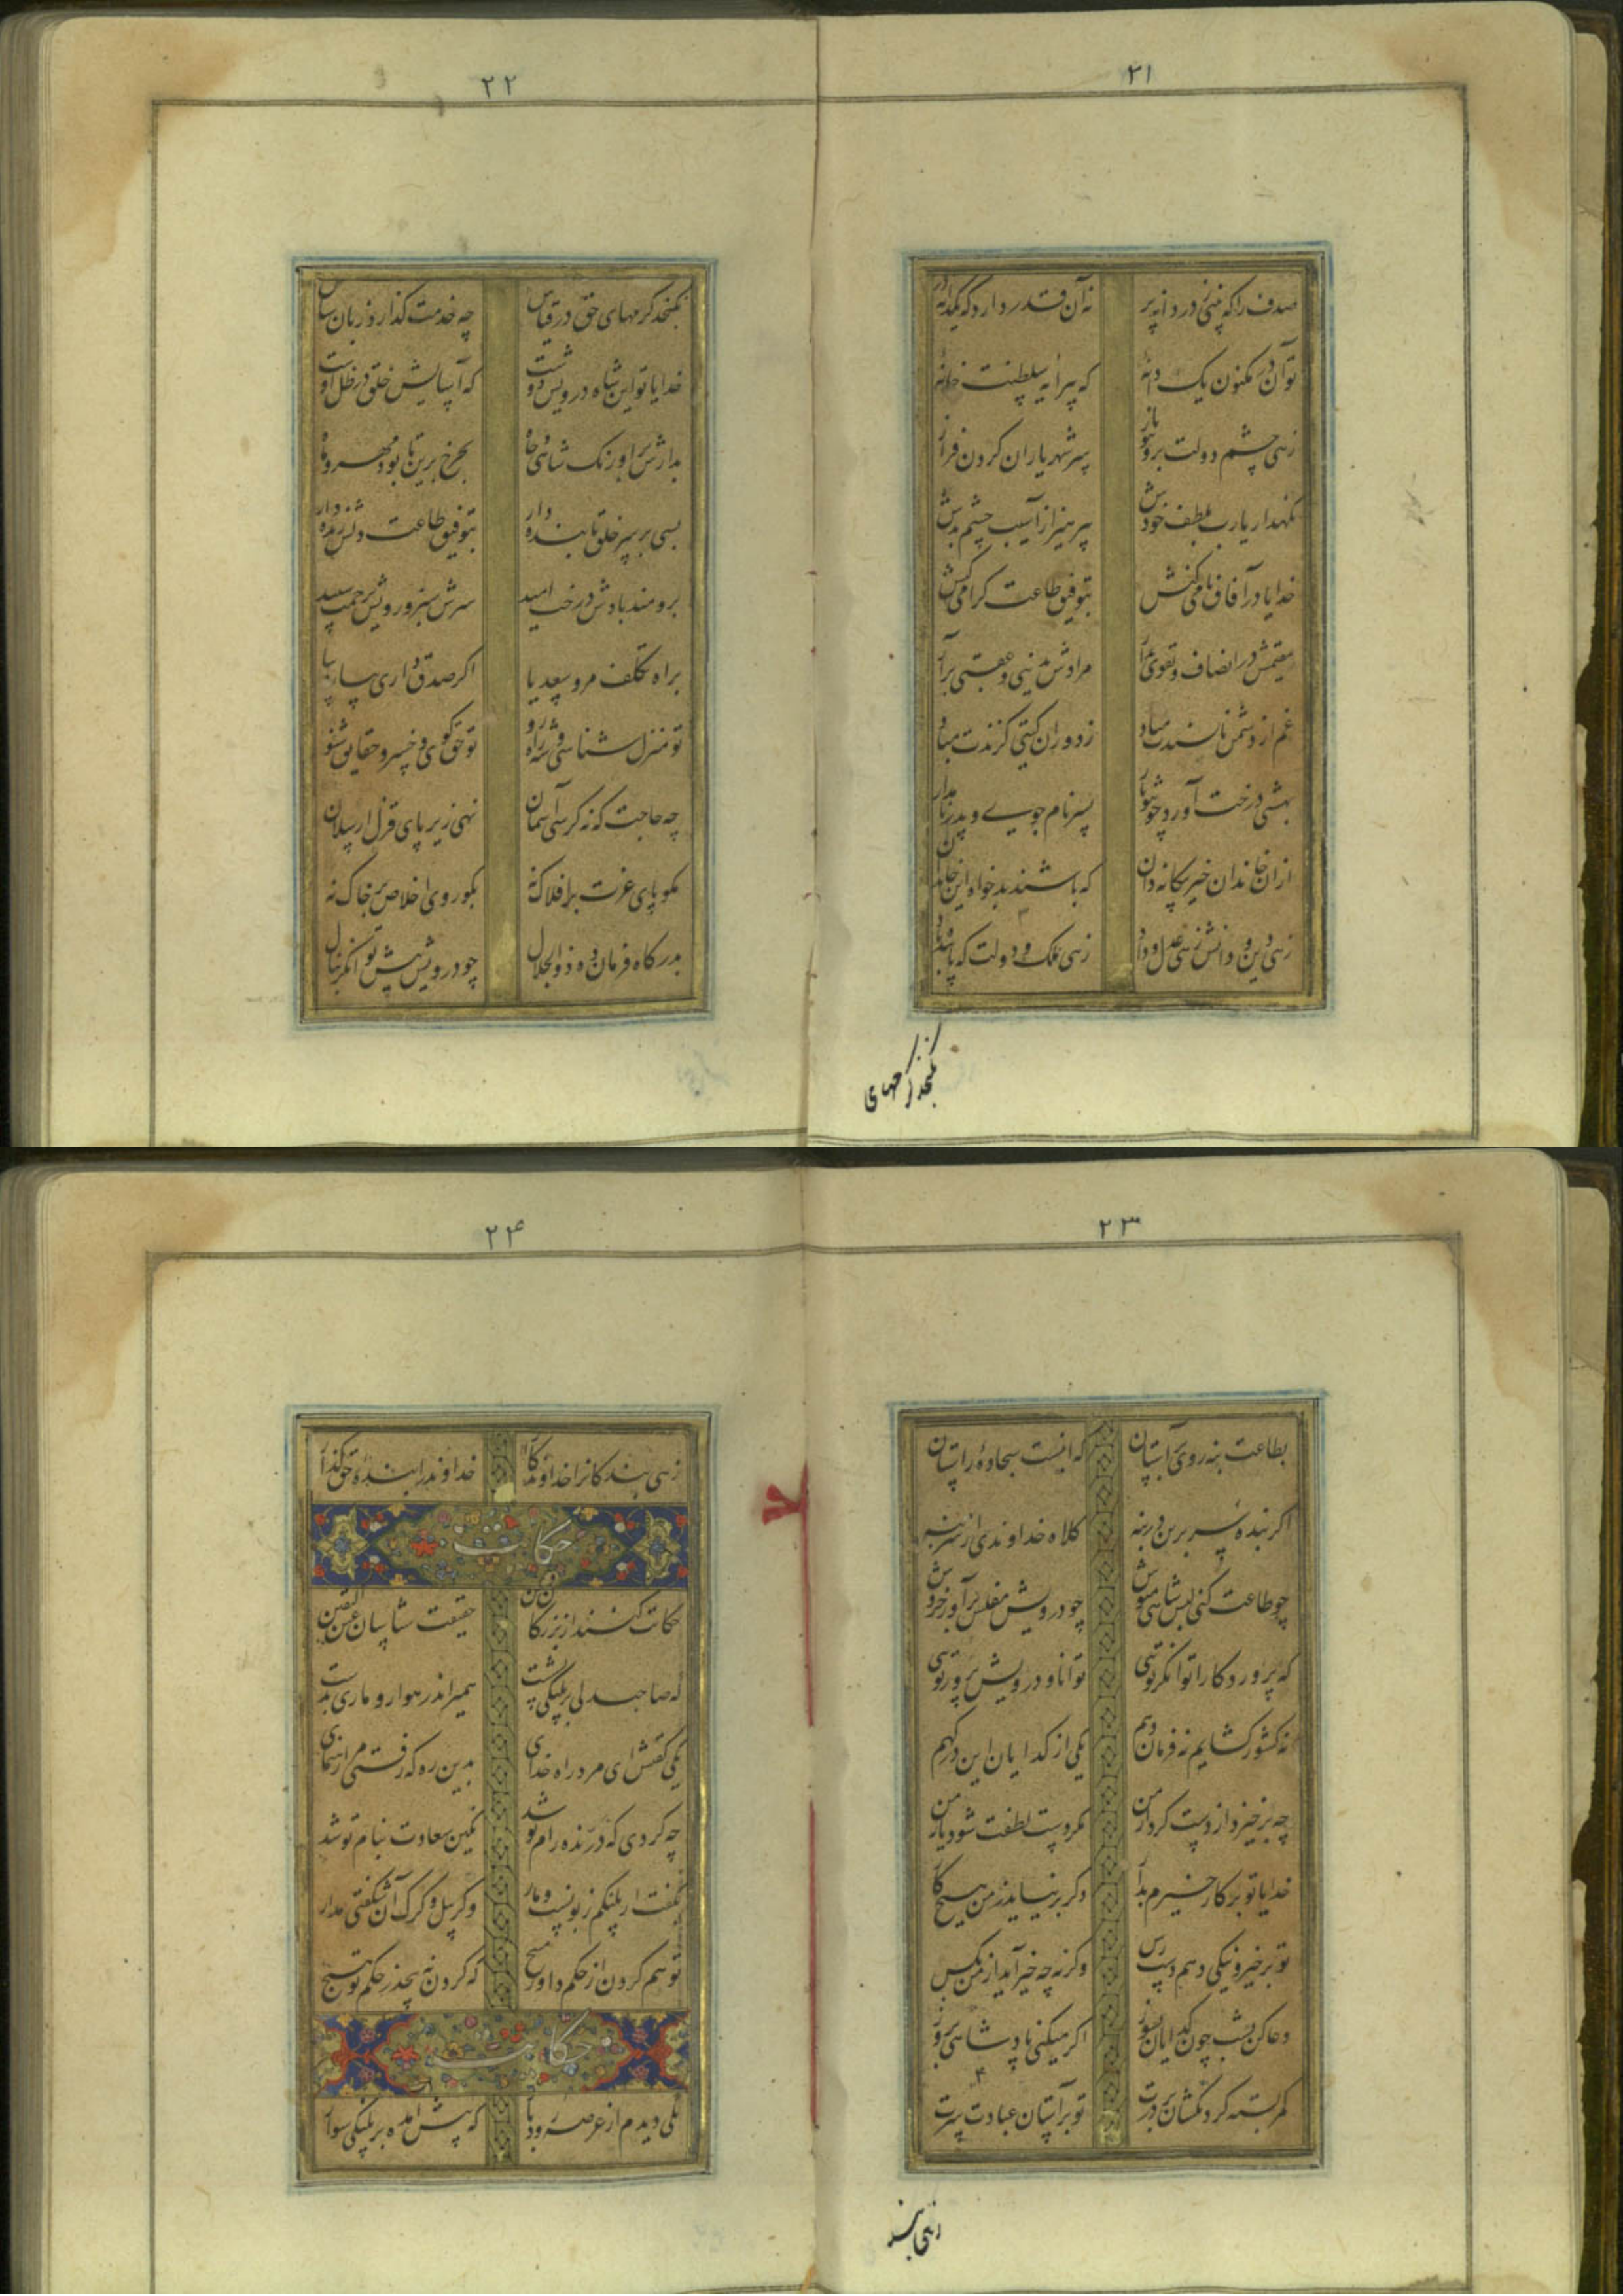 ۲۱
صدف را که بینی ز دردانه پر نه آن قدر دارد که یکدانه در
تو آن در مکنون یک دانه که پیرایه سلطنت خانه
زهی چشم دولت بروی تو باز سر شهریاران گردن فراز
نگهدار یارب بلطف خودش بپرهیز از آسیب چشم بدش
خدایا در آفاق نامی کنش بتوفیق طاعت گرامی کنش
مقیمش در انصاف و تقوی بدار مرادش بدنیی و عقبی برآر
غم از دشمن ناپسندت مباد ز دوران گیتی گزندت مباد
بهشتی درخت آورد چون تو بار پسر نام جوی و پدر نامدار
از آن خاندان خیر بیگانه دان که باشند بدخواه این خاندان
زهی دین و دانش زهی عدل و داد زهی ملک و دولت که پاینده باد
نگنجد کرمهای
۲۲
نگنجد کرمهای حق در قیاس چه خدمت گذارد زبان سپاس
خدایا تو این شاه درویش دوست که آسایش خلق در ظل اوست
بدارش بر اورنگ شاهی و جاه بچرخ برین تا بود مهر و ماه
بسی بر سر خلق پاینده دار بتوفیق طاعت دلش زنده دار
برومند بادش درخت امید سرش سبز و رویش برحمت سپید
براه تکلف مرو سعدیا اگر صدق داری بیار و بیا
تو منزل شناسی و شه راه رو تو حق گوی و خسرو حقایق شنو
چه حاجت که نه کرسی آسمان نهی زیر پای قزل ارسلان
مگو پای عزت بر افلاک نه بگو روی اخلاص بر خاک نه
بدرگاه فرمان ده ذوالجلال چو درویش پیش توانگر بنال
۲۳
بطاعت بنه روی بر آستان که اینست سجاده راستان
اگر بنده سر برین در بنه کلاه خداوندی از سر بنه
چو طاعت کنی لبس شاهی مپوش چو درویش مفلس برآور خروش
که پروردگارا توانگر توئی توانا و درویش پرور توئی
نه کشور گشایم نه فرمان دهم یکی از گدایان این درگهم
چه برخیزد از دست کردار من مگر دست لطفت شود یار من
خدایا تو بر کار خیرم بدار وگر نه نیاید ز من هیچ کار
تو بر خیر و نیکی دهم دسترس وگرنه چه خیر آید از من بکس
دعا کن بشب چون گدایان بسوز اگر میکنی پادشاهی بروز
کمر بسته گردنکشان بر درت تو بر آستان عبادت سرت
زهی بند
۲۴
زهی بندگانرا خداوندگار خداوند را بنده حق گذار
حکایت
حکایت کنند از بزرگان دین حقیقت شناسان عین الیقین
که صاحبدلی بر پلنگی نشست همیراند رهوار و ماری بدست
یکی گفتش ای مرد راه خدای بدین ره که رفتی مرا ره نمای
چه کردی که درنده رام تو شد نگین سعادت بنام تو شد
بگفت ار پلنگم زبونست و مار وگر پیل و کرگ آن شگفتی مدار
تو هم گردن از حکم داور مپیچ که گردن نه پیچد ز حکم تو هیچ
حکایت
یکی دیدم از عرصه رودبار که پیش آمدم بر پلنگی سوار